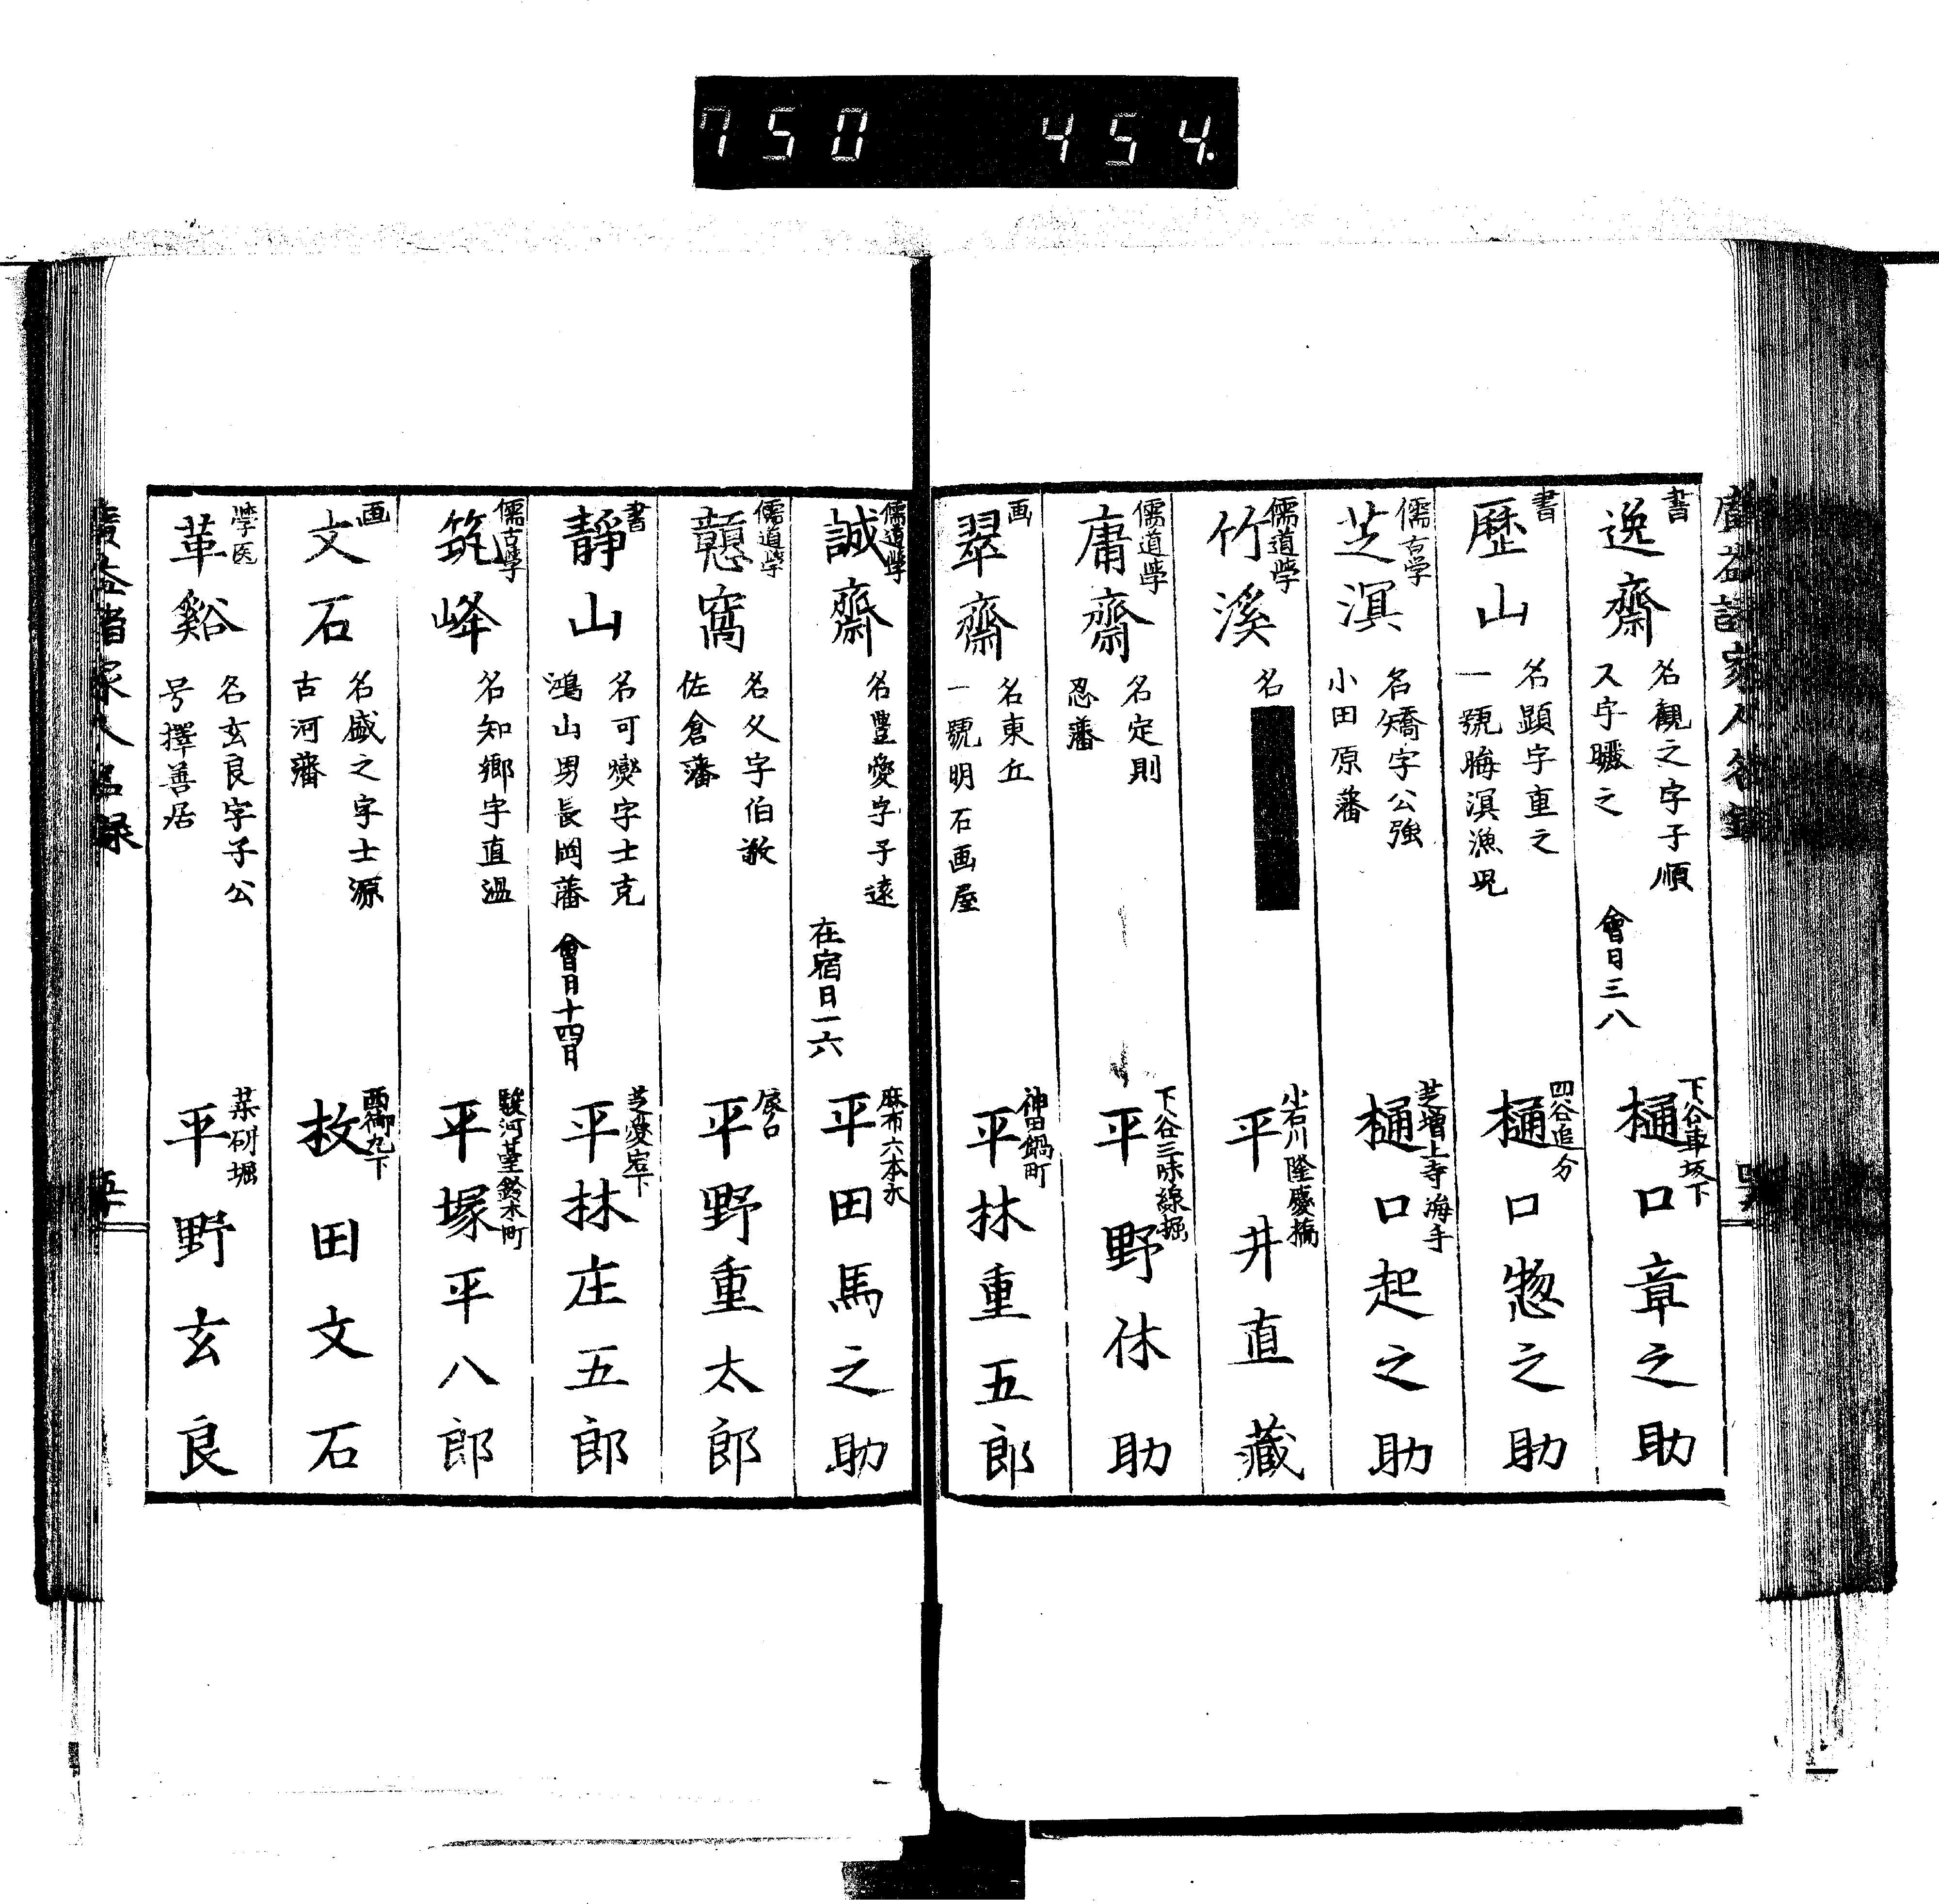 750 454.
書
逸齋
名観之字子順
又字曦之
會日三八
下谷車坂下
樋口章之助
書
歴山
名顕字重之
一號晦溟漁児
四谷追分
樋口惣之助
儒古学
芝溟
名矯字公強
小田原藩
芝増上寺海手
樋口起之助
儒道学
竹溪
名
小石川隆慶橋
平井直藏
儒道学
庸齋
名定則
忍藩
下谷三味線堀
平野休助
画
翠齋
名東丘
一號明石画屋
神田鍋町
平林重五郎
儒道学
誠齋
名豊愛字子遠
在宿日一六
麻布六本木
平田馬之助
儒道学
窩
名文字伯敬
佐倉藩
辰口
平野重太郎
書
靜山
名可變字士克
鴻山男長岡藩
會日十四日
芝愛宕下
平林庄五郎
儒古学
筑峰
名知郷字直温
駿河臺鈴木町
平塚平八郎
画
文石
名盛之字士源
古河藩
西御丸下
枚田文石
学医
革谿
名玄良字子公
号擇善居
薬研堀
平野玄良
廣益諸家人名録